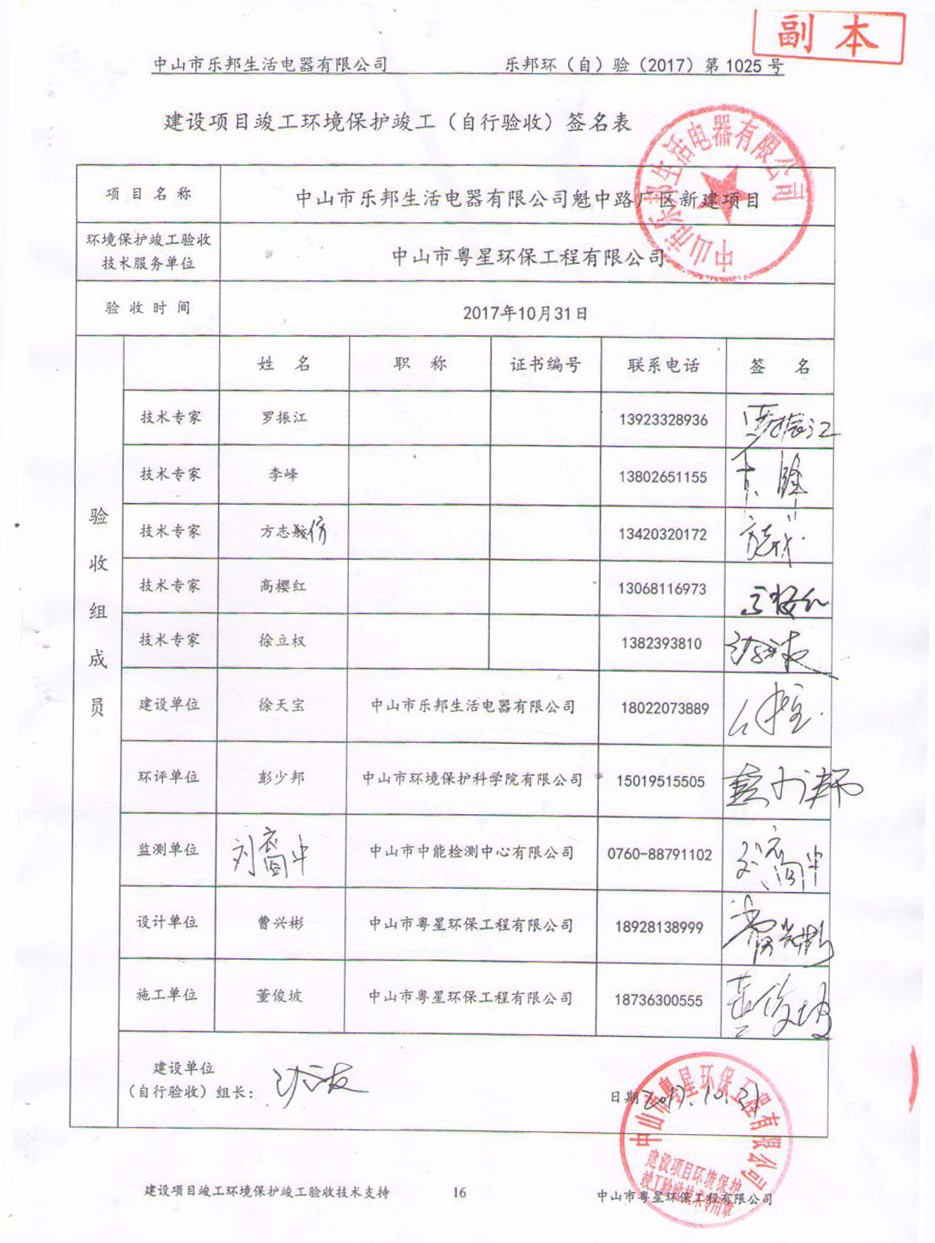 副本
中山市乐邦生活电器有限公司 乐邦环（自）验（2017）第 1025 号
建设项目竣工环境保护竣工（自行验收）签名表
中山市乐邦生活电器有限公司
项目名称 中山市乐邦生活电器有限公司魁中路厂区新建项目
环境保护竣工验收
技术服务单位 中山市粤星环保工程有限公司
验收时间 2017年10月31日
验收组成员
姓名 职称 证书编号 联系电话 签名
技术专家 罗振江 13923328936 罗振江
技术专家 李峰 13802651155
技术专家 方志 13420320172
技术专家 高樱红 13068116973 高樱红
技术专家 徐立权 1382393810
建设单位 徐天宝 中山市乐邦生活电器有限公司 18022073889
环评单位 彭少邦 中山市环境保护科学院有限公司 15019515505
监测单位 中山市中能检测中心有限公司 0760-88791102
设计单位 曹兴彬 中山市粤星环保工程有限公司 18928138999 曹兴彬
施工单位 董俊坡 中山市粤星环保工程有限公司 18736300555 董俊坡
建设单位
（自行验收）组长：
日期 2017.10.31
中山市粤星环保工程有限公司
建设项目环境保护
竣工验收技术专用章
建设项目竣工环境保护竣工验收技术支持 16 中山市粤星环保工程有限公司